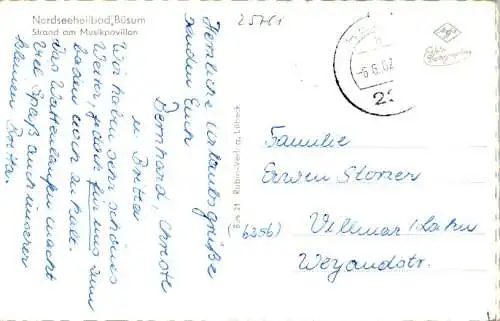 Nordseeheilbad Büsum
Strand am Musikpavillon
25761
Herzliche Urlaubsgrüße
senden Euch
Bernhard, Christe
u Britta
Wir haben sehr schönes
Wetter, jedoch für uns zum
baden noch zu kalt.
Das Wattenlaufen macht
viel Spaß auch unserer
kleinen Britta.
Büs 21 Rubin-Verlag, Lübeck
-6.6.62
22
Agfa
Echte
Photographie
Familie
Erwin Störzer
(6256) Villmar/Lahn
Weyandstr.